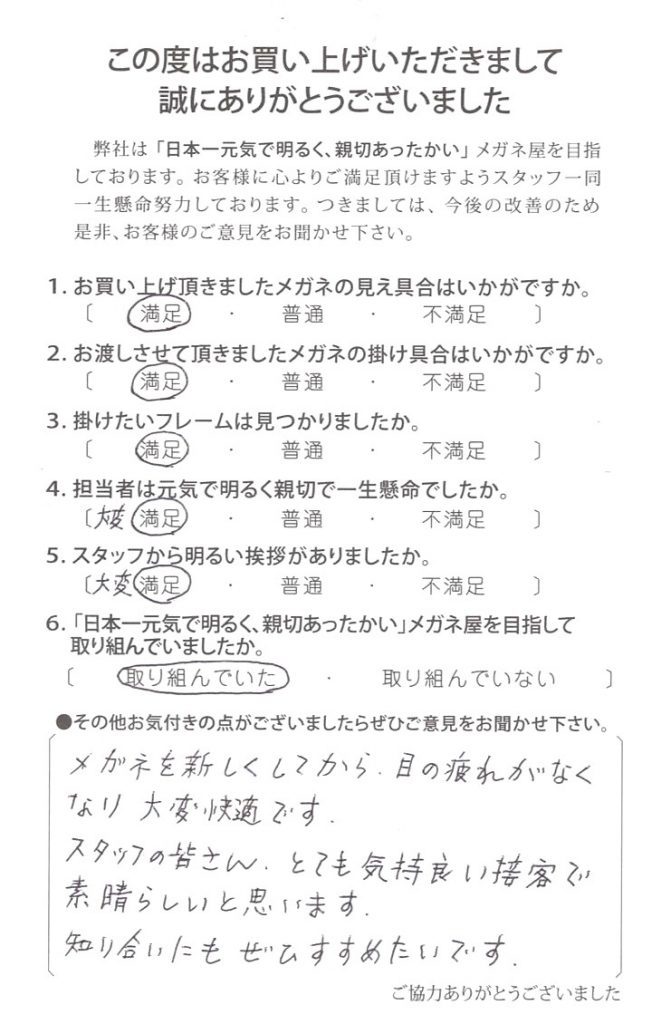 この度はお買い上げいただきまして
誠にありがとうございました
弊社は「日本一元気で明るく、親切あったかい」メガネ屋を目指
しております。お客様に心よりご満足頂けますようスタッフ一同
一生懸命努力しております。つきましては、今後の改善のため
是非、お客様のご意見をお聞かせ下さい。
1. お買い上げ頂きましたメガネの見え具合はいかがですか。
〔 満足 ・ 普通 ・ 不満足 〕
2. お渡しさせて頂きましたメガネの掛け具合はいかがですか。
〔 満足 ・ 普通 ・ 不満足 〕
3. 掛けたいフレームは見つかりましたか。
〔 満足 ・ 普通 ・ 不満足 〕
4. 担当者は元気で明るく親切で一生懸命でしたか。
〔大変 満足 ・ 普通 ・ 不満足 〕
5. スタッフから明るい挨拶がありましたか。
〔大変 満足 ・ 普通 ・ 不満足 〕
6.「日本一元気で明るく、親切あったかい」メガネ屋を目指して
取り組んでいましたか。
〔 取り組んでいた ・ 取り組んでいない 〕
●その他お気付きの点がございましたらぜひご意見をお聞かせ下さい。
メガネを新しくしてから、目の疲れがなく
なり 大変快適です.
スタッフの皆さん、とても気持良い接客で
素晴らしいと思います.
知り合いにも ぜひすすめたいです.
ご協力ありがとうございました